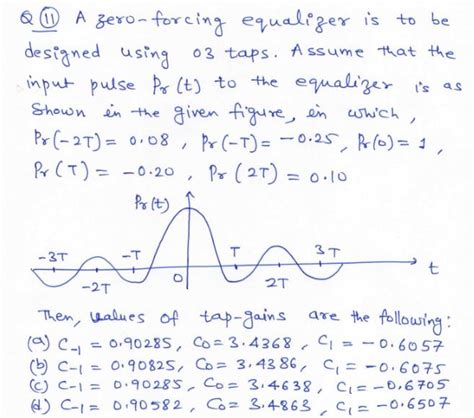 Q ⑪ A zero-forcing equalizer is to be
designed using 03 taps. Assume that the
input pulse Pr(t) to the equalizer is as
shown in the given figure, in which,
Pr(-2T) = 0.08 , Pr(-T) = -0.25, Pr(0) = 1 ,
Pr(T) = -0.20 , Pr(2T) = 0.10
Pr(t)
-3T -T T 3T
-2T 0 2T t
Then, values of tap-gains are the following:
(a) C-1 = 0.90285, C0 = 3.4368, C1 = -0.6057
(b) C-1 = 0.90825, C0 = 3.4386, C1 = -0.6075
(c) C-1 = 0.90285, C0 = 3.4638, C1 = -0.6705
(d) C-1 = 0.90582, C0 = 3.4863, C1 = -0.6507